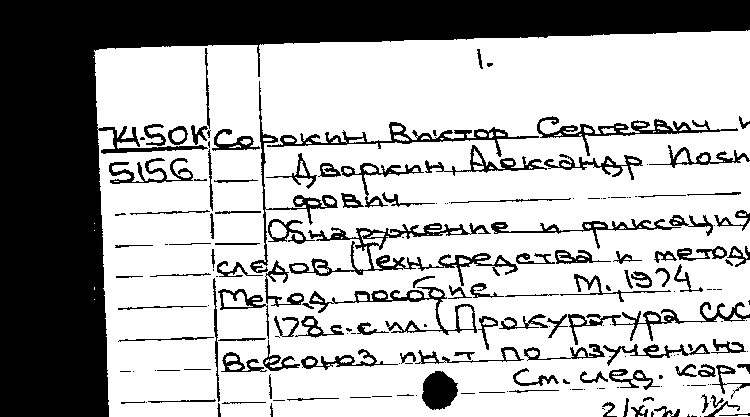 1.
74-50к Сорокин, Виктор Сергеевич и
5156 Дворкин, Александр Иоси
фович.
Обнаружение и фиксация
следов. (Техн. средства и методы
Метод. пособие. М., 1974.
178 с. с ил. (Прокуратура ССС
Всесоюз. ин-т по изучению
См. след. карт